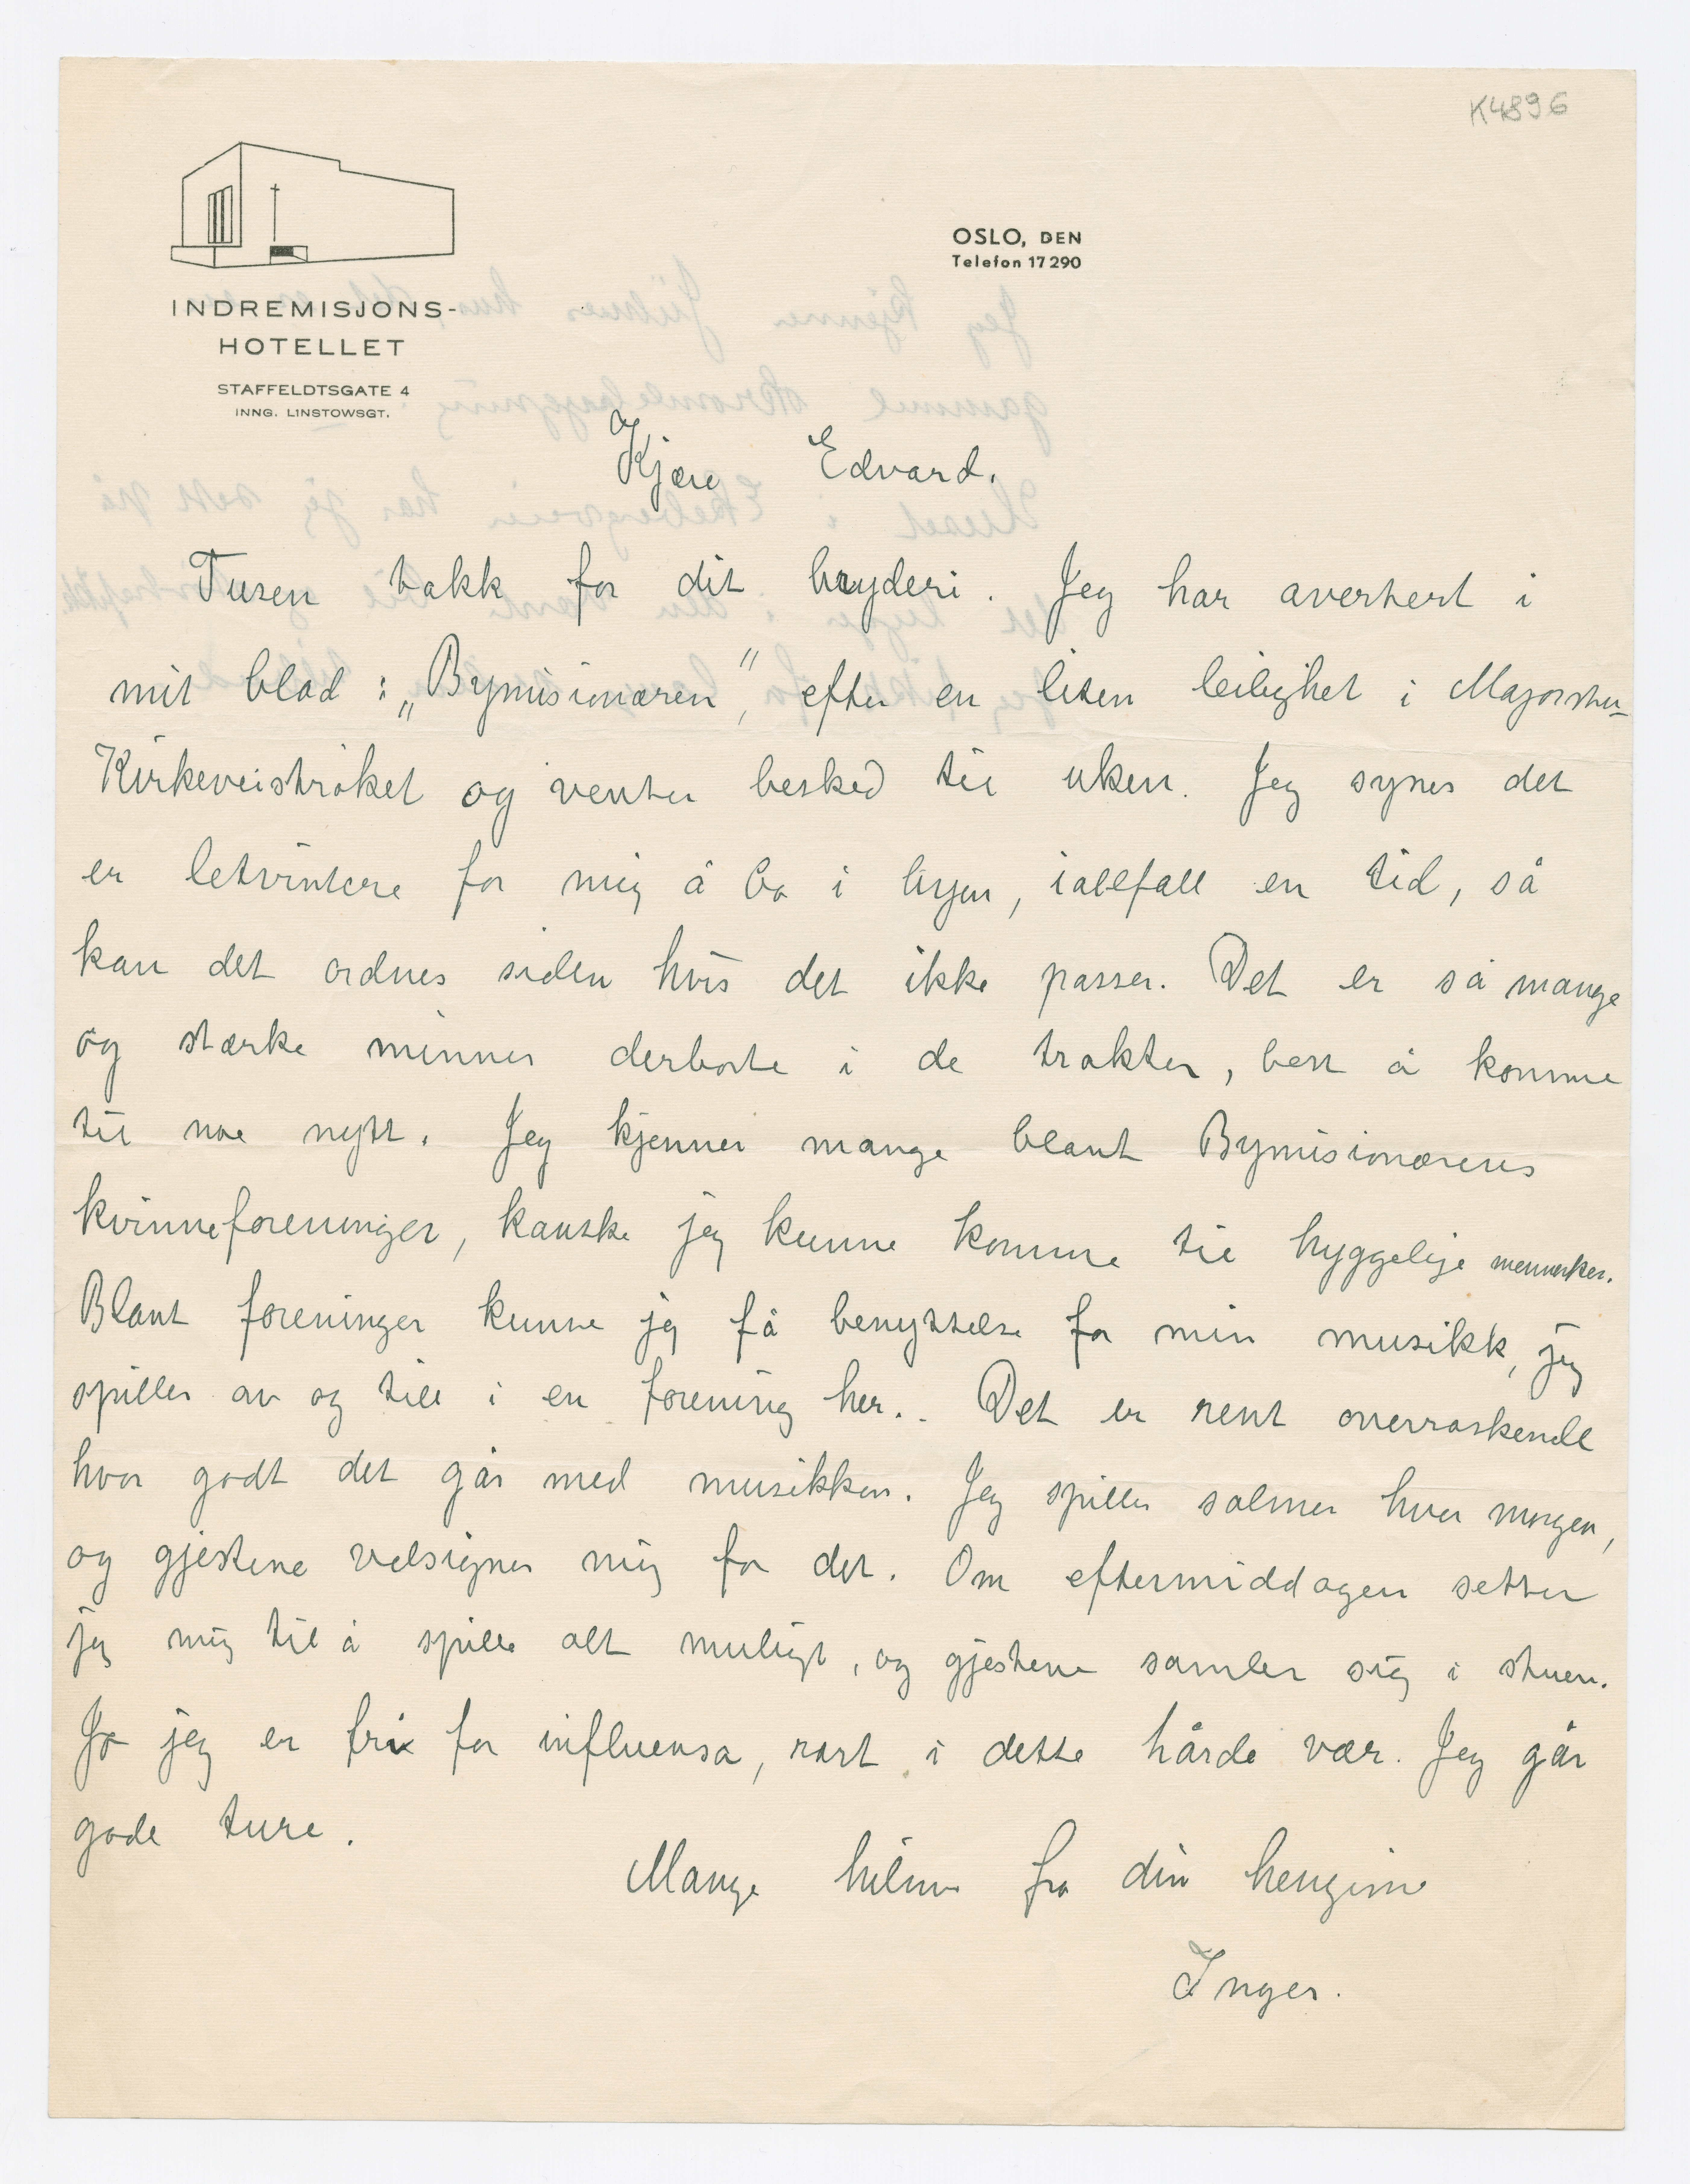 K4896
OSLO, DEN
Telefon 17290
INDREMISJONS-
HOTELLET
STAFFELDTSGATE 4
INNG. LINSTOWSGT.
Kjære Edvard.
Tusen takk for dit bryderi. Jeg har avertert i
mit blad: „Bymisionæren", efter en liten leilighet i Majorstu-
Kirkeveistrøket og venter besked til uken. Jeg synes det
er letvintere for mig å bo i byen, iallefall en tid, så
kan det ordnes siden hvis det ikke passer. Det er så mange
og stærke minner derborte i de trakter, best å komme
til noe nytt. Jeg kjenner mange blant Bymisionærens
kvinneforeninger, kanske jeg kunne komme til hyggelige mennesker.
Blant foreninger kunne jeg få benyttelse for min musikk, jeg
spiller av og till i en forening her.. Det er rent overraskende
hvor godt det går med musikken. Jeg spiller salmer hver morgen,
og gjestene velsigner mig for det. Om eftermiddagen setter
jeg mig til å spille alt muligt, og gjestene samler sig i stuen.
Jo jeg er fri for influensa, rart i dette hårde vær. Jeg går
gode ture.
Mange hilsner fra din hengivne
Inger.